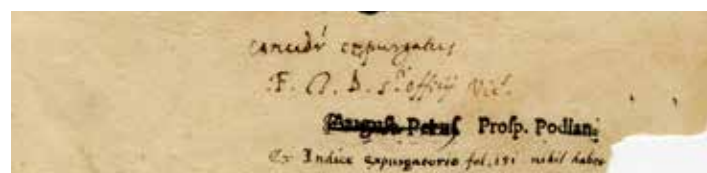 expurgatus
F. A. B. s.ti officij Vic.
August. Perus Prosp. Podian.
Ex Indice expurgatorio fol. 191 nihil habet